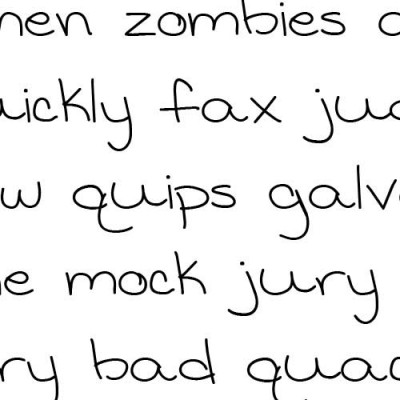 men zombies
uickly fax jud
w quips galv
e mock jury
ry bad quad